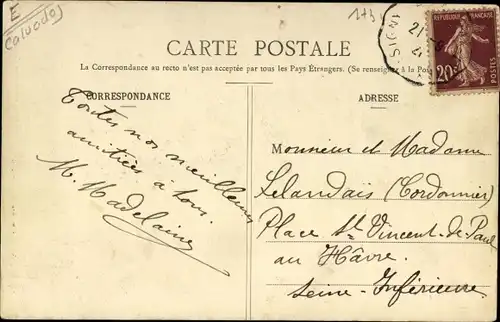 E
Calvados
1+3
CARTE POSTALE
La Correspondance au recto n'est pas acceptée par tous les Pays Étrangers. (Se renseigner à la Poste
CORRESPONDANCE
ADRESSE
RÉPUBLIQUE FRANÇAISE
20c
POSTES
21
Toutes nos meilleures
amitiés à tous.
M. Madelaine
Monsieur et Madame
Lelandais (Cordonnier)
Place St Vincent-de-Paul
au Hâvre
Seine-Inférieure